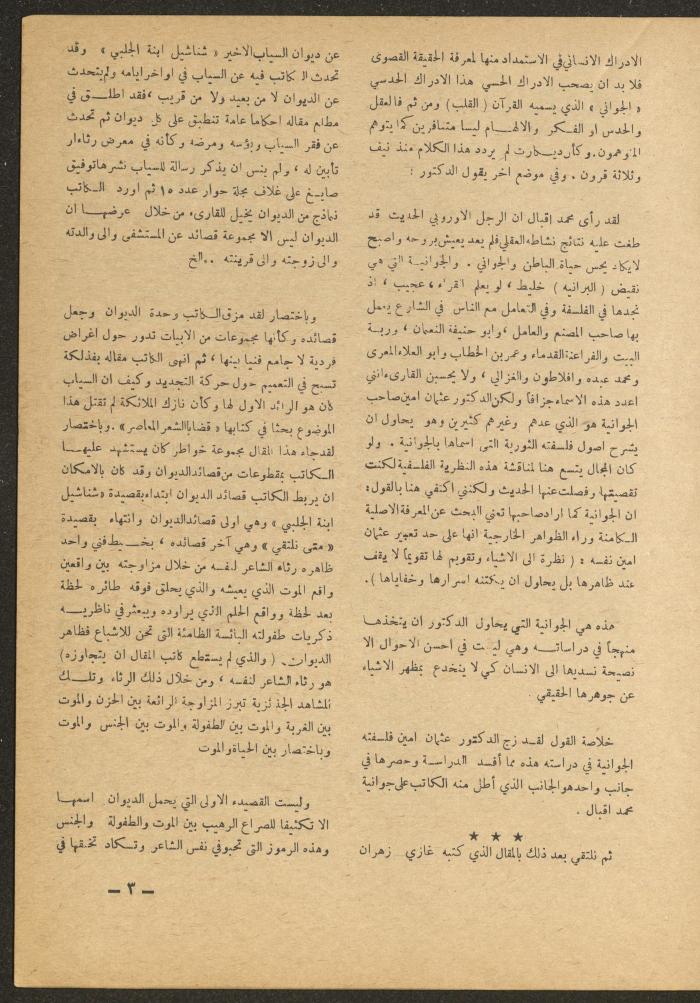 الادراك الانساني في الاستمداد منها لمعرفة الحقيقة القصوى
فلا بد ان يصحب الادراك الحسي هذا الادراك الحدسي
« الجواني » الذي يسميه القرآن ( القلب ) ومن ثم فالعقل
والحدس او الفكر والالهام ليسا متنافرين كما يتوهم
المتوهمون . وكأن ديكارت لم يردد هذا الكلام منذ نيف
وثلاثة قرون . وفي موضع اخر يقول الدكتور :
لقد رأى محمد إقبال ان الرجل الاوروبي الحديث قد
طغت عليه نتائج نشاطه العقلي فلم يعد يعيش بروحه واصبح
لا يكاد يحس حياة الباطن والجواني . والجوانية التي هي
نقيض ( البرانيه ) خليط ، لو يعلم القراء ، عجيب ، اذ
نجدها في الفلسفة وفي التعامل مع الناس في الشارع يعمل
بها صاحب المصنع والعامل ، وابو حنيفة النعمان ، وربة
البيت والفراعنة القدماء وعمر بن الخطاب وابو العلاء المعرى
ومحمد عبده وافلاطون والغزالي ، ولا يحسبن القارىء انني
اعدد هذه الاسماء جزافاً ولكن الدكتور عثمان امين صاحب
الجوانية هو الذي عدهم وغيرهم كثيرين وهو يحاول ان
يشرح اصول فلسفته الثورية التى اسماها بالجوانية . ولو
كان المجال يتسع هنا لمناقشة هذه النظرية الفلسفية لكنت
تقصيتها وفصلت عنها الحديث ولكنني اكتفي هنا بالقول :
ان الجوانية كما ارادصاحبها تعني البحث عن المعرفة الاصلية
الكامنة وراء الظواهر الخارجية انها على حد تعبير عثمان
امين نفسه : ( نظرة الى الاشياء وتقويم لها تقويماً لا يقف
عند ظاهرها بل يحاول ان يكتنه اسرارها وخفاياها ) .
هذه هي الجوانية التي يحاول الدكتور ان يتخذها
منهجاً في دراساته وهي ليست في احسن الاحوال الا
نصيحة نسديها الى الانسان كي لا ينخدع بمظهر الاشياء
عن جوهرها الحقيقي .
خلاصة القول لقد زج الدكتور عثمان امين فلسفته
الجوانية في دراسته هذه مما أفسد الدراسة وحصرها في
جانب واحد هو الجانب الذي أطل منه الكاتب على جوانية
محمد اقبال .
★ ★ ★
ثم نلتقي بعد ذلك بالمقال الذي كتبه غازي زهران
عن ديوان السياب الاخير « شناشيل ابنة الجلبي » وقد
تحدث الكاتب فيه عن السياب في اواخر ايامه ولم يتحدث
عن الديوان لا من بعيد ولا من قريب ، فقد اطلق في
مطلع مقاله احكاما عامة تنطبق على كل ديوان ثم تحدث
عن فقر السياب وبؤسه ومرضه وكأنه في معرض رثاء او
تأبين له ، ولم ينس ان يذكر رسالة للسياب نشرها توفيق
صايغ على غلاف مجلة حوار عدد ١٥ ثم اورد الكاتب
نماذج من الديوان يخيل للقارىء من خلال عرضها ان
الديوان ليس الا مجموعة قصائد عن المستشفى والى والدته
والى زوجته والى قرينته .. الخ
وباختصار لقد مزق الكاتب وحدة الديوان وجعل
قصائده وكأنها مجموعات من الابيات تدور حول اغراض
فردية لا جامع فنيا بينها ، ثم انهى الكاتب مقاله بفذلكة
تسبح في التعميم حول حركة التجديد وكيف ان السياب
كان هو الرائد الاول لها وكأن نازك الملائكة لم تقتل هذا
الموضوع بحثا في كتابها « قضايا الشعر المعاصر » . وباختصار
لقد جاء هذا المقال مجموعة خواطر كان يستشهد عليها
الكاتب بمقطوعات من قصائد الديوان وقد كان بالامكان
ان يربط الكاتب قصائد الديوان ابتداء بقصيدة « شناشيل
ابنة الجلبي » وهي اولى قصائد الديوان وانتهاء بقصيدة
« متى نلتقي » وهي آخر قصائده ، بخيط فني واحد
ظاهره رثاء الشاعر لنفسه من خلال مزاوجته بين واقعين
واقع الموت الذي يعيشه والذي يحلق فوقه طائره لحظة
بعد لحظة وواقع الحلم الذي يراوده ويبعثر في ناظريه
ذكريات طفولته البائسة الظامئة التى تحن للاشباع فظاهر
الديوان ( والذي لم يستطع كاتب المقال ان يتجاوزه )
هو رثاء الشاعر لنفسه ، ومن خلال ذلك الرثاء وتلك
المشاهد الجنائزية تبرز المزاوجة الرائعة بين الحزن والموت
بين الغربة والموت بين الطفولة والموت بين الجنس والموت
وباختصار بين الحياة والموت
وليست القصيده الاولى التي يحمل الديوان اسمها
الا تكثيفا للصراع الرهيب بين الموت والطفولة والجنس
وهذه الرموز التى تحبو في نفس الشاعر وتكاد تخنقها في
– ٣ –